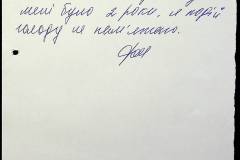 мені було 2 роки, я подій
голоду не пам'ятаю.